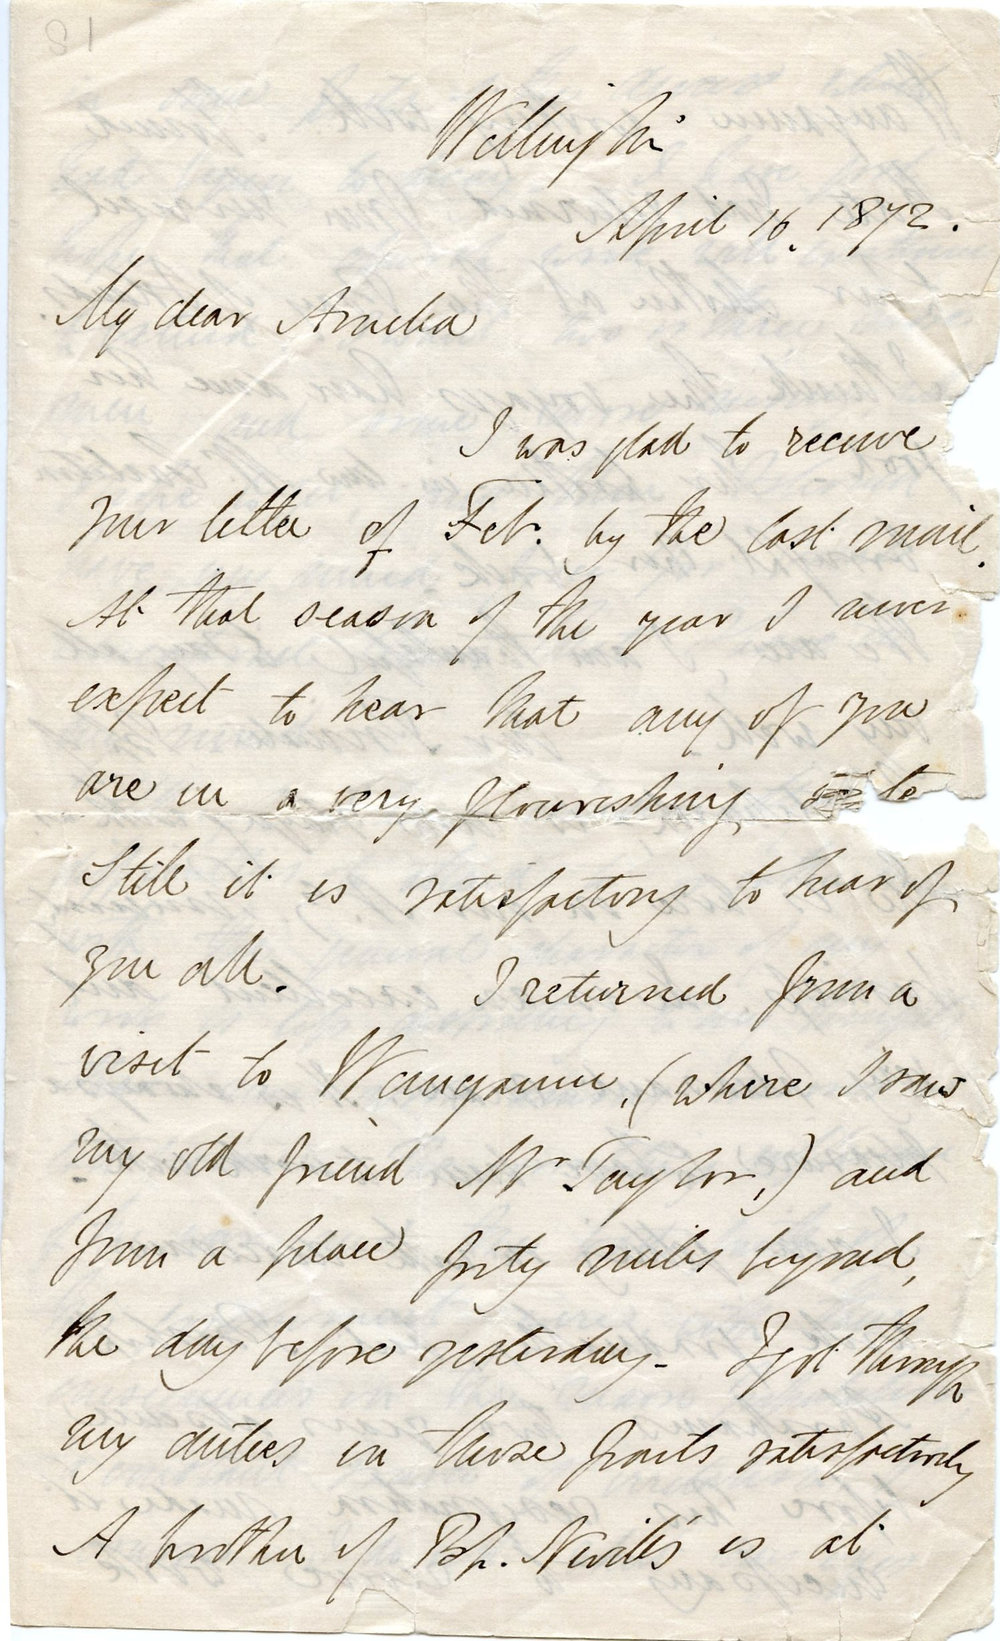 Wellington
April 16. 1872.
My dear Amelia
I was glad to receive
your letter of Feb. by the last mail.
At that season of the year I never
expect to hear that any of you
are in a very flourishing
Still it is satisfactory to hear of
you all. I returned from a
visit to Wanganui, (where I saw
my old friend Mr Taylor,) and
from a place forty miles beyond,
the day before yesterday - I got through
my duties in those parts satisfactorily
A brother of Bp. Nevill's is at